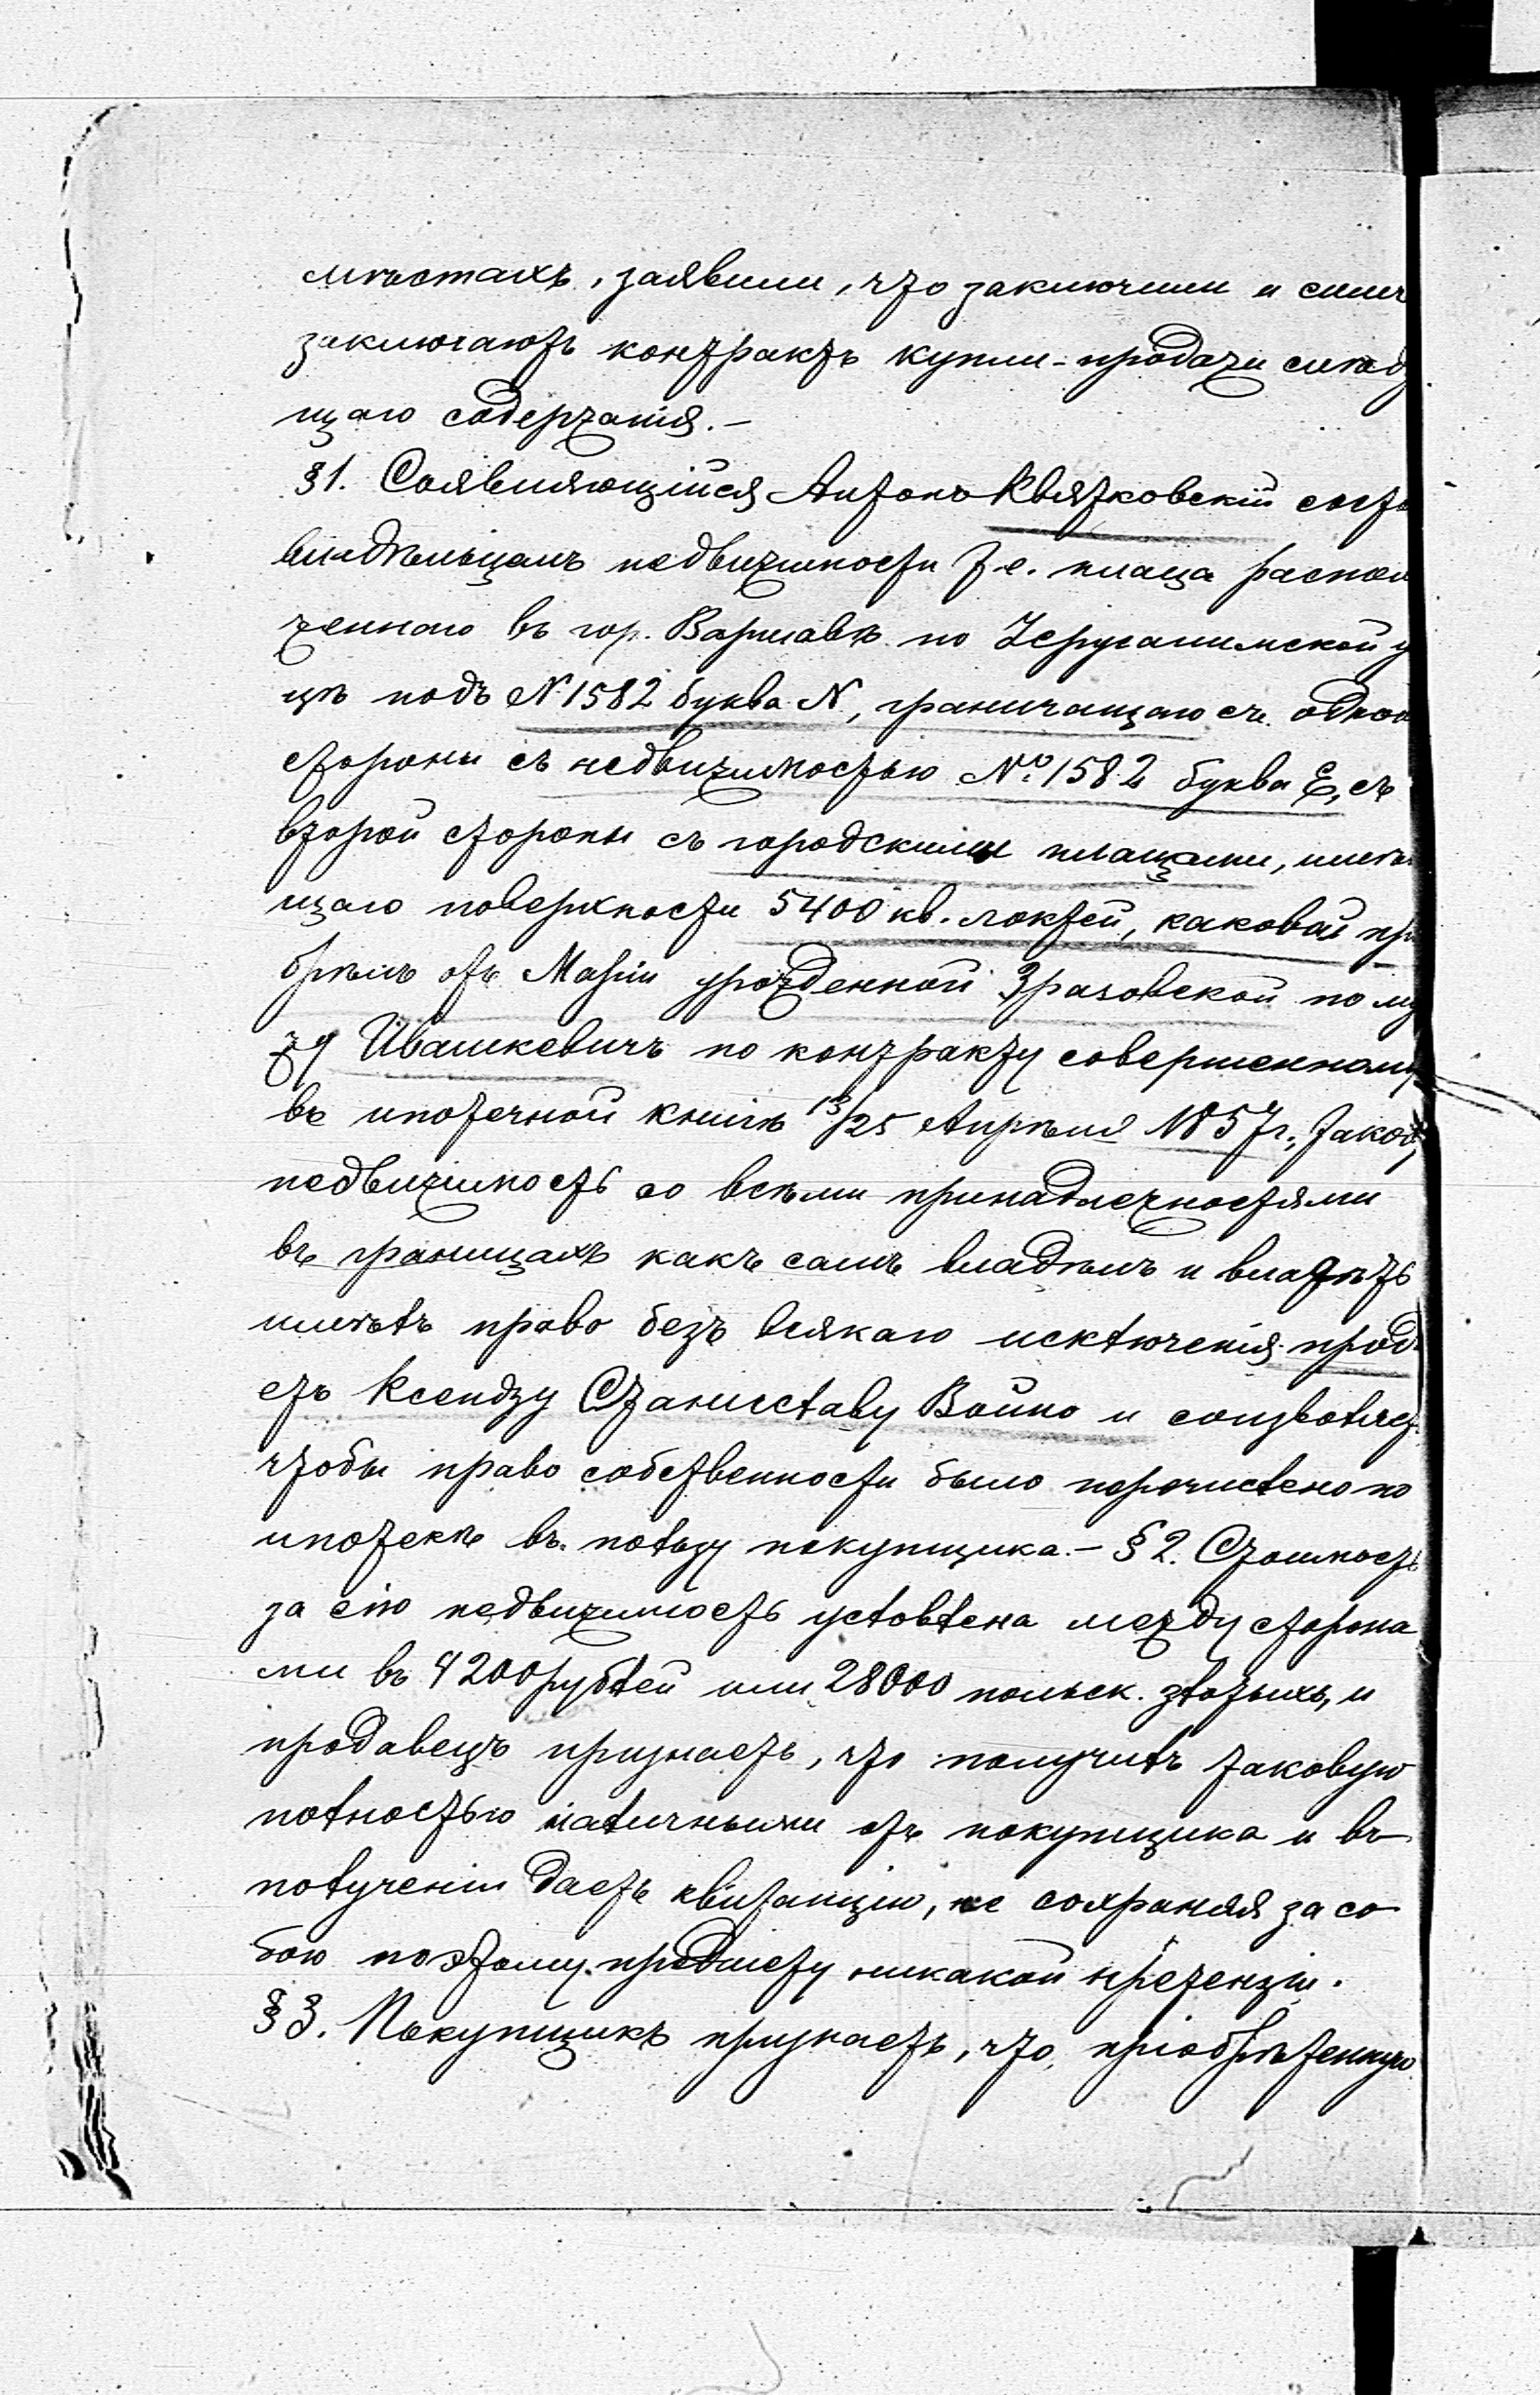 мѣстахъ, заявили, что заключили и симъ
заключаютъ контрактъ купли-продажи слѣду
щаго содержанія.-
§1. Соявляющійся Антонъ Квятковскій сост
владѣльцамъ недвижимости т.е. плаца распол
женнаго въ гор. Варшавѣ по Іерусалимской у
цѣ подъ №1582 буква N, граничащаго съ одной
стороны съ недвижимостью № 1582 буква Е, съ
второй стороны съ городскими плацами, имѣю
щаго поверхности 5400 кв. локтей, каковой прі
брѣлъ отъ Маріи урожденной Зразовской по му
жу Ивашкевичъ по контракту совершенному
въ ипотечной книгѣ 13/25 Апрѣля 1857г., таков
недвижимость со всѣми принадлежностями
въ границахъ какъ самъ владѣлъ и владѣть
имѣетъ право безъ всякаго исключенія прода
етъ Ксендзу Станиславу Войно и соизволяет
чтобы право собственности было перечислено по
ипотекѣ въ пользу покупщика.- §2. Стоимость
за сію недвижимость условлена между сторона
ми въ 4200 рублей или 28000 польск. злотыхъ, и
продавецъ признаетъ, что получилъ таковую
полностью наличными отъ покупщика и въ
полученіи даетъ квитанцію, не сохраняя за со
бою по этому предмету никакой претензіи.
§3. Покупщикъ признаетъ, что, пріобрѣтенную